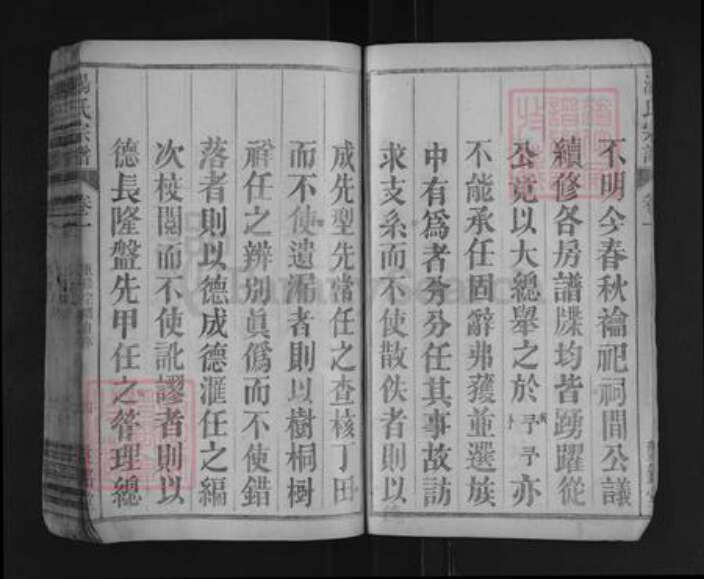 不明今春秋禴祀祠間公議
續修各房譜牒均皆踴躍從
公竟以大總舉之於予予亦
不能承任固辭弗獲並選族
中有爲者分分任其事故訪
求支系而不使散佚者則以
成先型先常任之查核丁田
而不使遺漏者則以樹桐樹
禮任之辨別眞僞而不使錯
落者則以德成德滙任之編
次校閱而不使訛謬者則以
德長隆盤先甲任之管理總
氏宗譜
卷一